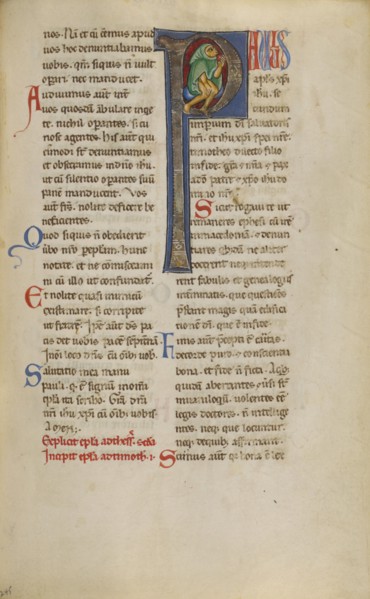 nos. Nā et cū essemus apud
vos hoc denuntiabamus
vobis. qm̄ siquis n̄ vult
opari. nec manducet.
Audivimus aūt int
vos quosdā ābulare inqe
te. nichil opantes. s; cu
riose agentes. His aūt qui
eiusmodi st̄ denuntiamus
et obsecramus in dn̄o ihu.
ut cū silentio opantes suū
panē manducent. Vos
aūt frs̄. nolite deficere be
neficientes.
Quod siquis n̄ obedierit
verbo nr̄o p eplam. hunc
notate. et ne cōmisceam
ini cū illo ut confundat.
Et nolite quasi inimicū
existimare. s; corripite
ut fratrē. Ipse aūt ds̄ pa
cis det vobis pacē sepiternā
in oī loco. dn̄s cū oībꝫ vob.
Salutatio mea manu
pauli. q̄ ē signū in omi
epla ita scribo. Gr̄a dn̄i
nr̄i ihu xpi cū oībꝫ vobis.
Amen.
Explicit epla ad thess. scda
Incipit epla ad timoth. i.
PAULUS
apls xpi
ihu. se
cundum
imperium di salvatoris
nr̄i. et ihu xpi spei nr̄e.
timotheo dilecto filio
in fide. gr̄a et mīa et pax
a dō patre et xpo ihu do
mino nr̄o.
Sicut rogavi te ut
remaneres ephesi cū irē
in macedoniā. ut denun
tiares quibusdā ne aliter
docerent neque intende
rent fabulis et genealogiis
interminatis. que questiōes
p̄stant magis quā edifica
tionē dī. que ē in fide.
Finis aūt p̄cepti ē caritas.
de corde puro. et conscientia
bona. et fide n̄ ficta. A qꝫ
quidā aberrantes. cōversi st̄
in vaniloquiū. volentes eē
legis doctores. n̄ intellige
ntes. neqꝫ que locuntur.
neqꝫ de quibꝫ affirmant.
Scimus aūt qꝫ bona ē lex